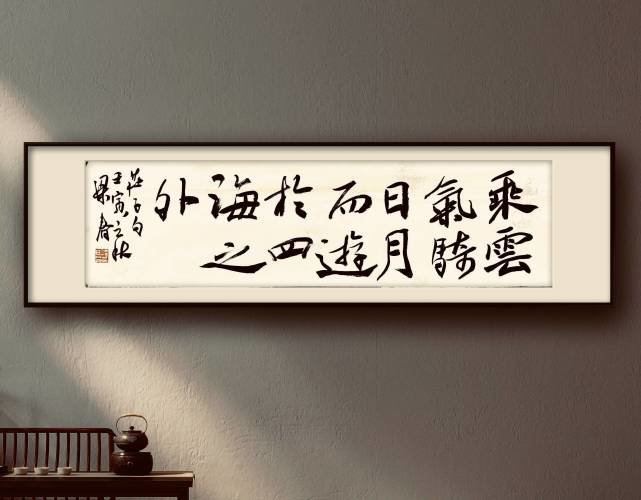 乘雲
氣騎
日月
而遊
於四
海之
外
莊子句
壬寅之秋
梁